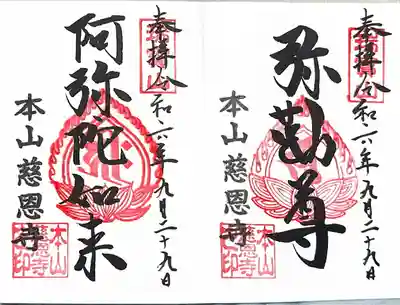 奉拝 令和六年九月二十九日
弥勒尊
本山慈恩寺
本山慈恩寺之印
奉拝 令和六年九月二十九日
阿弥陀如来
本山慈恩寺
本山慈恩寺之印